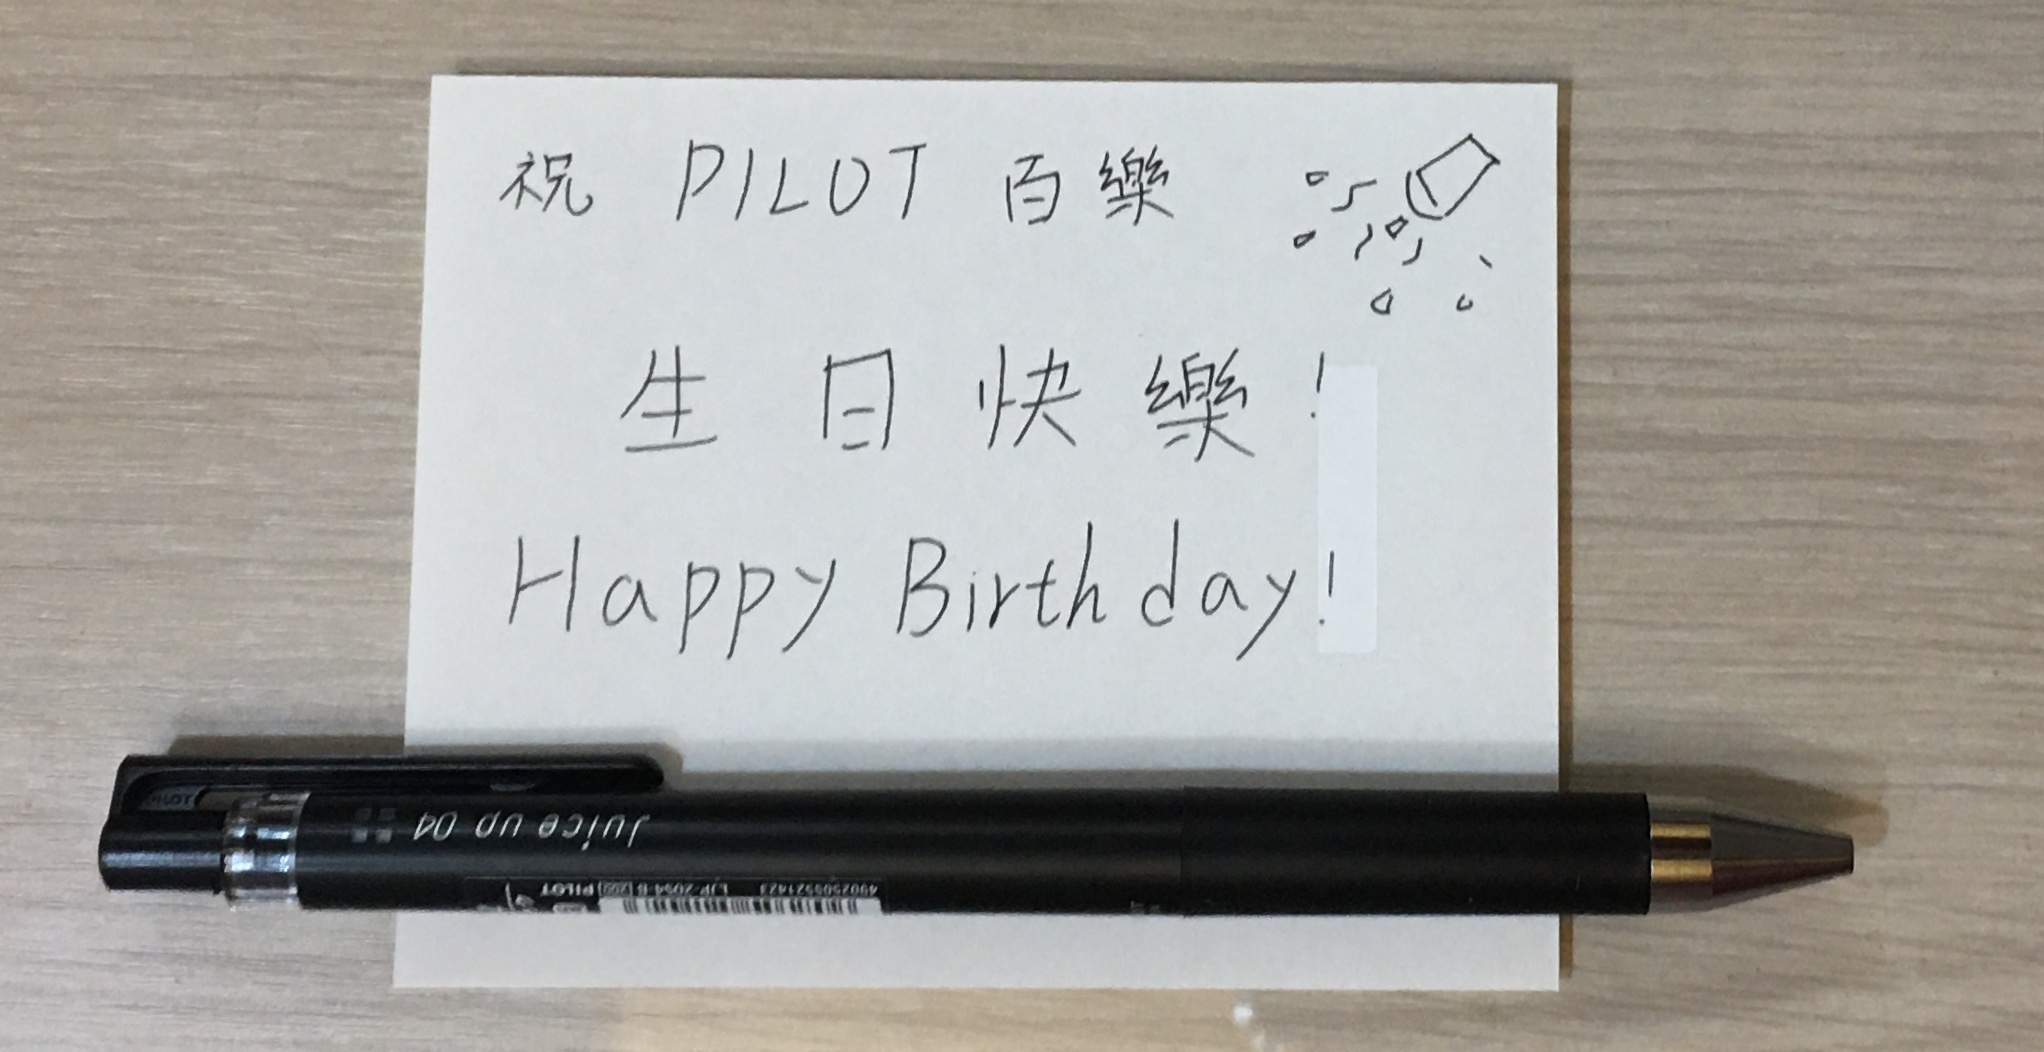 祝 PILOT 百樂
生日快樂!
Happy Birthday!
Juice up 04
4902505521423 LJP-20S4-B 200 PILOT